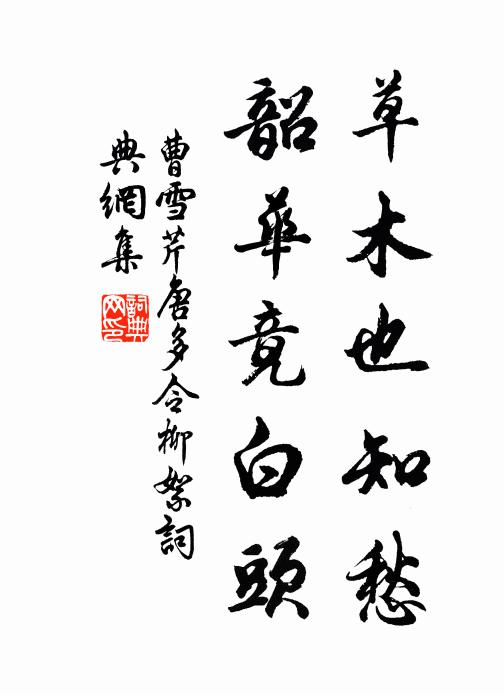 草木也知愁
韶華竟白頭
曹雪芹唐多令柳絮詞
典網集
詞典网印